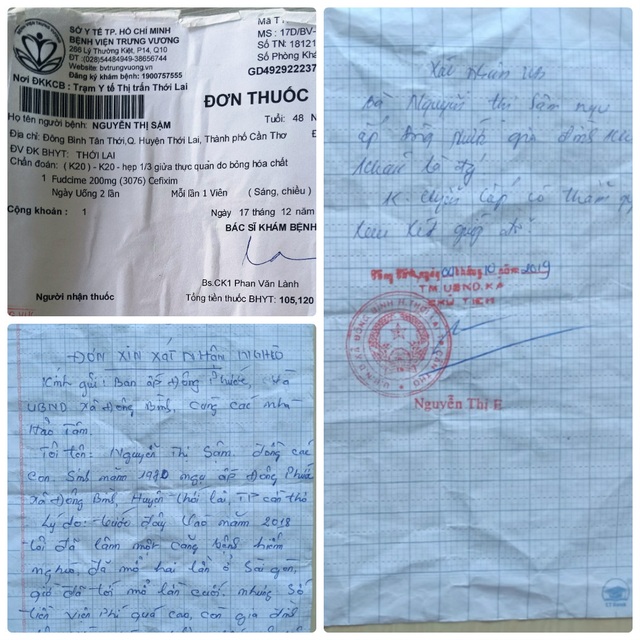 SỞ Y TẾ TP. HỒ CHÍ MINH
BỆNH VIỆN TRƯNG VƯƠNG
266 Lý Thường Kiệt, P14, Q10
ĐT :(028)54484949-38656744
Website: bvtrungvuong.vn
Đăng ký khám bệnh: 1900757555
Nơi ĐKKCB : Trạm Y tế Thị trấn Thới Lai
MS : 17D/BV-
Số TN: 18121
Số Phòng Khá
GD492922237
ĐƠN THUỐC
Họ tên người bệnh: NGUYỄN THỊ SẬM Tuổi: 48
Địa chỉ: Đông Bình Tân Thới,Q. Huyện Thới Lai, Thành phố Cần Thơ
ĐV ĐK BHYT: THỚI LAI
Chẩn đoán: ( K20) - K20 - hẹp 1/3 giữa thực quản do bỏng hóa chất
1 Fudcime 200mg (3076) Cefixim
Ngày Uống 2 lần Mỗi lần 1 Viên ( Sáng, chiều )
Cộng khoản : 1 Ngày 17 tháng 12 năm
BÁC SĨ KHÁM BỆNH
Bs.CK1 Phan Văn Lành
Người nhận thuốc Tổng tiền thuốc BHYT: 105,120
ĐƠN XIN XÁT NHẬN NGHÈO
Kính gửi: Ban ấp Đông Phước,
UBND xã Đông Bình, cùng các nhà
Hảo Tâm.
Tôi tên: Nguyễn Thị Sậm. đồng các
con. Sinh năm ngụ ấp Đông Phước
xã Đông Bình, Huyện Thới lai, TP cần thơ
Lý do: trước đây vào năm 2018
tôi đã lâm một căng bệnh hiểm
nghèo, đã mổ hai lần ở Sài gòn,
giờ đã tới mổ lần cuối. nhưng số
tiền viện Phí quá cao, còn gia đình
Xát nhận
bà Nguyễn thị Sậm ngụ
ấp Đông phước gia đình
K. chuyển cấp có thẩm
xem xét giúp đỡ.
ngày 09 tháng 10 năm 2019
TM UBND.XÃ
CHỦ TỊCH
Nguyễn Thị E